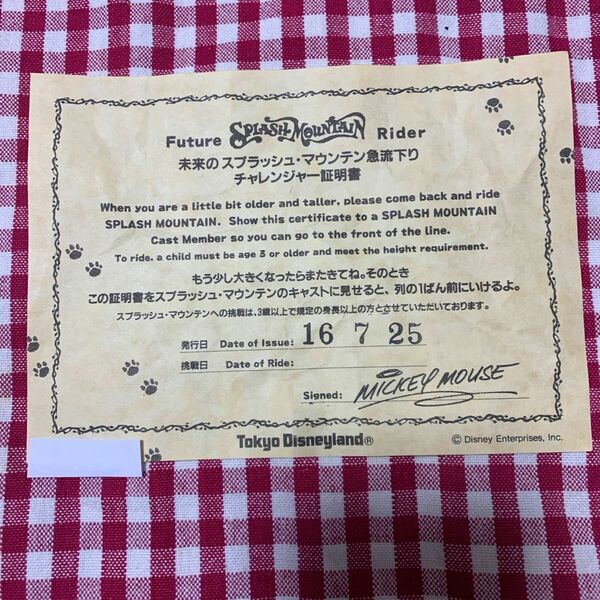 Future SPLASH MOUNTAIN Rider
未来の スプラッシュ・マウンテン急流下り
チャレンジャー証明書
When you are a little bit older and taller, please come back and ride
SPLASH MOUNTAIN. Show this certificate to a SPLASH MOUNTAIN
Cast Member so you can go to the front of the line.
To ride, a child must be age 3 or older and meet the height requirement.
もう少し大きくなったらまたきてね。そのとき
この証明書をスプラッシュ・マウンテンのキャストに見せると、列の1ばん前にいけるよ。
スプラッシュ・マウンテンへの挑戦は、3歳以上で規定の身長以上の方と立せていただいております。
発行日 Date of Issue: 16 7 25
挑戦日 Date of Ride:
Signed: MICKEY MOUSE
Tokyo Disneyland®
© Disney Enterprises, Inc.